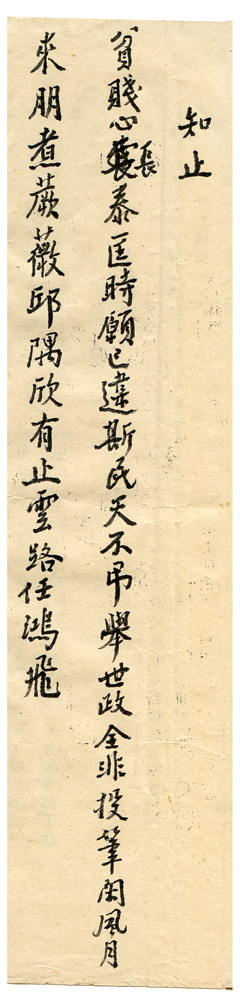 知止
貧賤心長泰匡時願已違斯民天不吊舉世政全非投筆閑風月
來朋煮蕨薇邱隅欣有止雲路任鴻飛